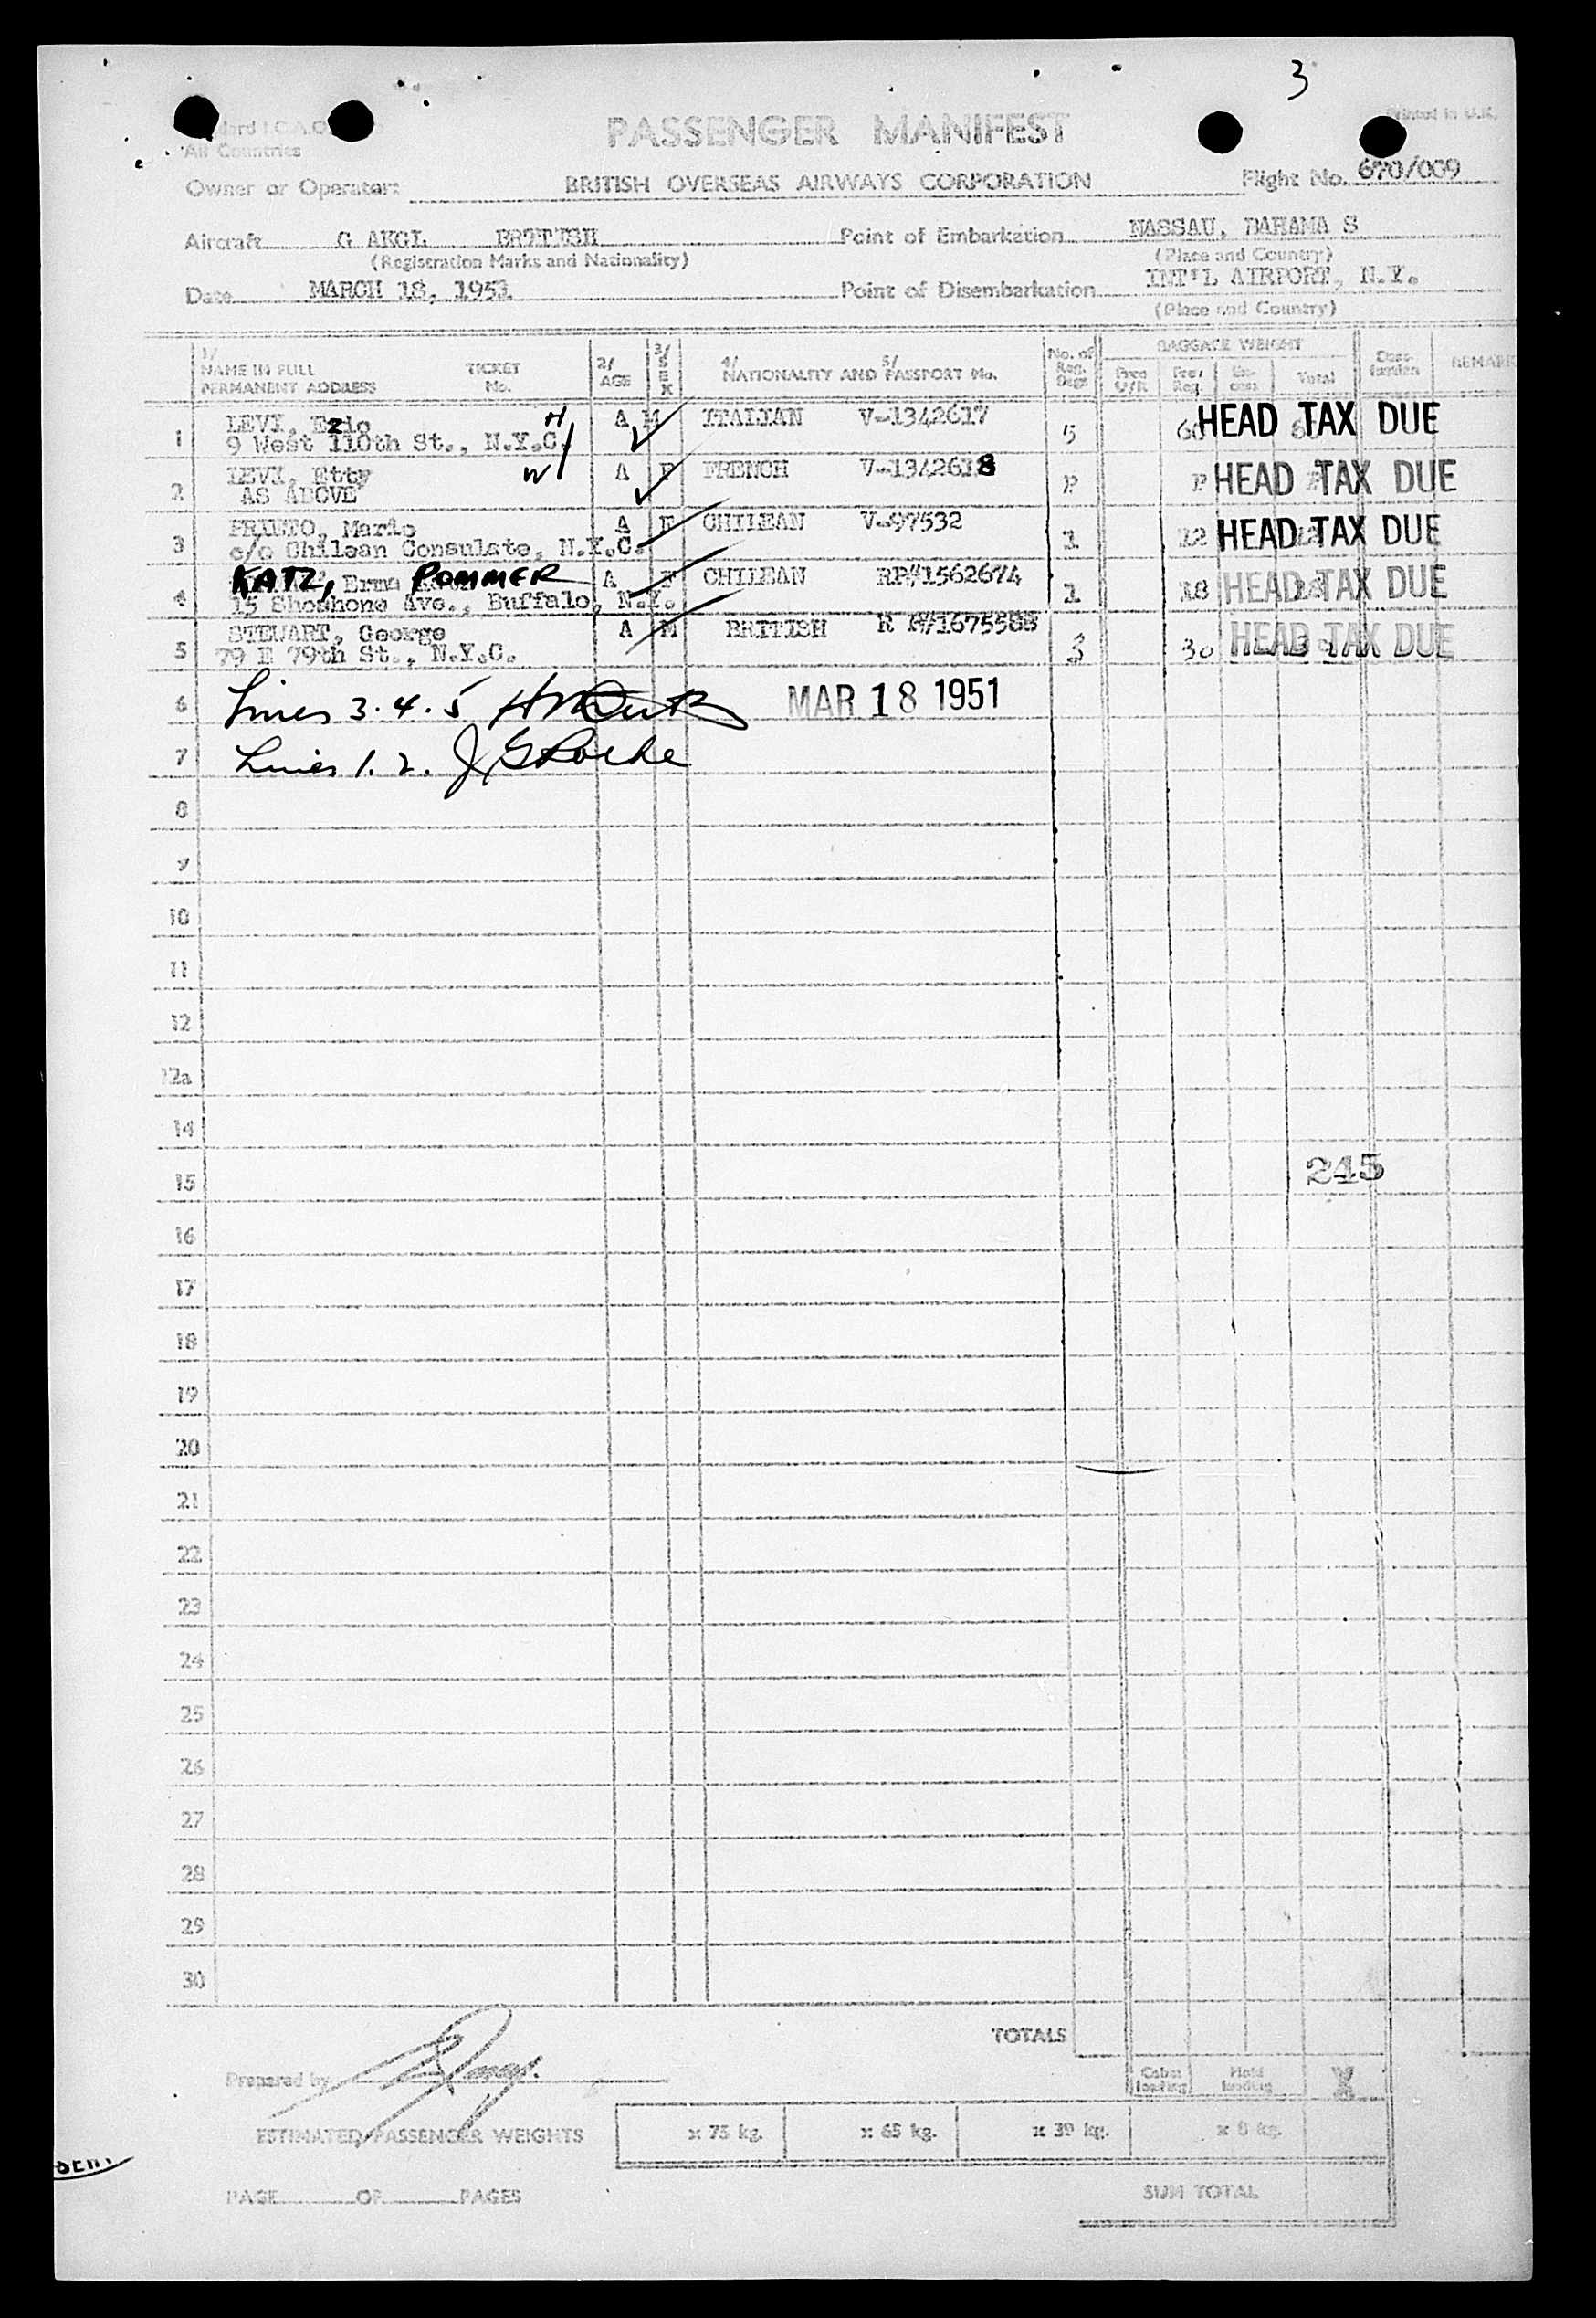 3
All Countries
Printed in U.K.
PASSENGER MANIFEST
Owner or Operator: BRITISH OVERSEAS AIRWAYS CORPORATION Flight No. 670/009
Aircraft G AKGL BRITISH Point of Embarkation NASSAU, BAHAMA S
(Registration Marks and Nationality) (Place and Country)
Date MARCH 18, 1951 Point of Disembarkation INT'L AIRPORT, N.Y.
(Place and Country)
1/ NAME IN FULL PERMANENT ADDRESS TICKET No. 2/ AGE 3/ SEX 4/ NATIONALITY AND 5/ PASSPORT No. No. of Reg. Bags BAGGAGE WEIGHT Total REMARK
1 LEVI, Ezio H A M ITALIAN V-1342617 5 60 HEAD TAX DUE
9 West 110th St., N.Y.C.
2 LEVI, Etty W A F FRENCH V-1342618 P P HEAD TAX DUE
AS ABOVE
3 PRIETO, Mario A F CHILEAN V-97532 1 22 HEAD TAX DUE
c/o Chilean Consulate, N.Y.C.
4 KATZ, Erna POMMER A F CHILEAN RP#1562674 1 18 HEAD TAX DUE
15 Shoshone Ave., Buffalo, N.Y.
5 STEUART, George A M BRITISH R P#1675588 3 30 HEAD TAX DUE
79 E 79th St., N.Y.C.
6 Lines 3.4.5 MAR 18 1951
7 Lines 1.2.
8
9
10
11
12
12a
14
15 245
16
17
18
19
20
21
22
23
24
25
26
27
28
29
30
TOTALS
Prepared by
Cabin loading Hold loading
ESTIMATED PASSENGER WEIGHTS x 75 kg. x 65 kg. x 39 kg. x 8 kg.
PAGE OF PAGES SUM TOTAL